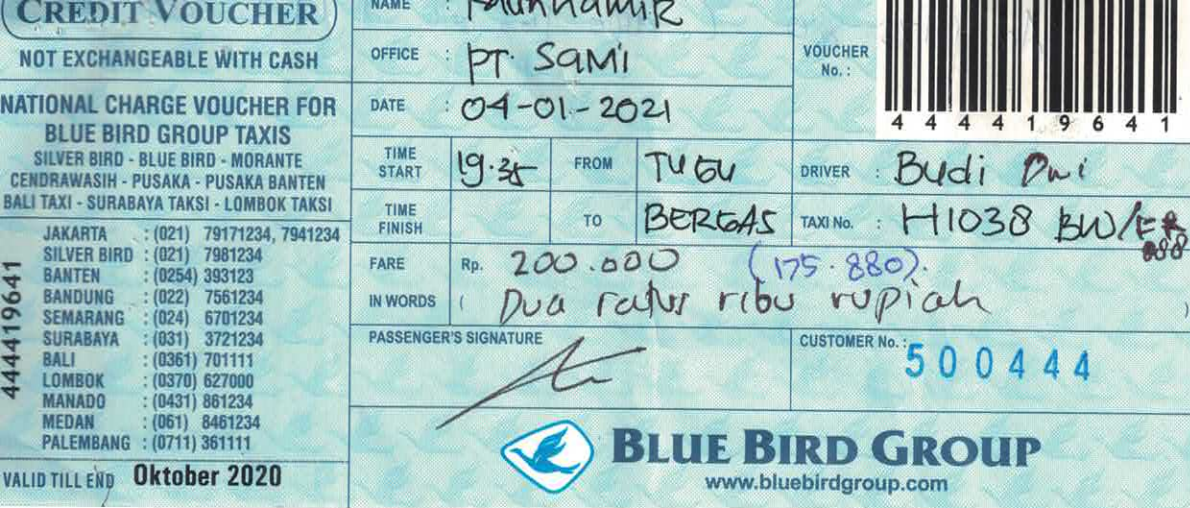 CREDIT VOUCHER
NOT EXCHANGEABLE WITH CASH
NATIONAL CHARGE VOUCHER FOR
BLUE BIRD GROUP TAXIS
SILVER BIRD - BLUE BIRD - MORANTE
CENDRAWASIH - PUSAKA - PUSAKA BANTEN
BALI TAXI - SURABAYA TAKSI - LOMBOK TAKSI
JAKARTA : (021) 79171234, 7941234
SILVER BIRD : (021) 7981234
BANTEN : (0254) 393123
BANDUNG : (022) 7561234
SEMARANG : (024) 6701234
SURABAYA : (031) 3721234
BALI : (0361) 701111
LOMBOK : (0370) 627000
MANADO : (0431) 861234
MEDAN : (061) 8461234
PALEMBANG : (0711) 361111
444419641
VALID TILL END Oktober 2020
NAME :
OFFICE : PT. SAMI
DATE : 04-01-2021
VOUCHER
No. :
444419641
TIME START 19.35 FROM TUGU DRIVER : Budi Dwi
TIME FINISH TO BERGAS TAXI No. : H1038 BW/
FARE Rp. 200.000 (175.880).
IN WORDS ( Dua ratus ribu rupiah )
PASSENGER'S SIGNATURE
CUSTOMER No. : 500444
BLUE BIRD GROUP
www.bluebirdgroup.com